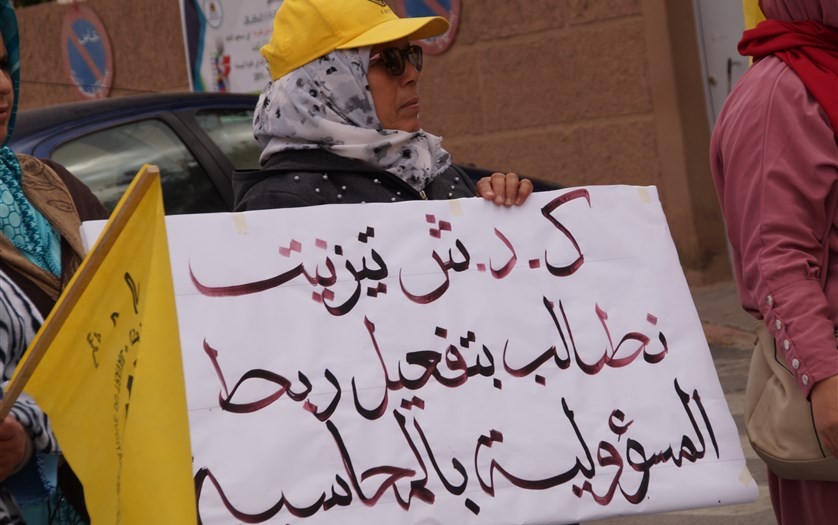 ك.د.ش تيزنيت
نطالب بتفعيل ربط
المسؤولية بالمحاسبة